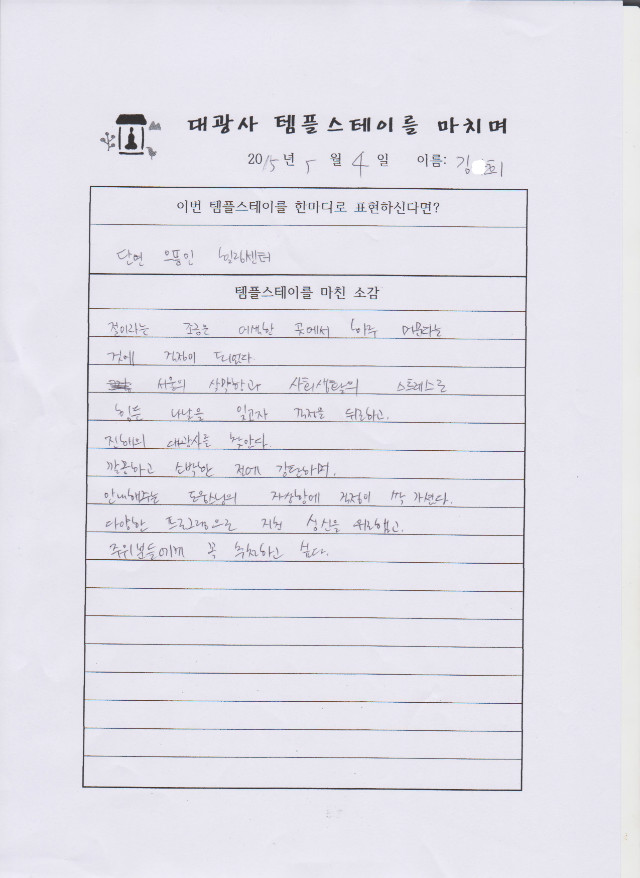 대광사 템플스테이를 마치며
2015년 5월 4일 이름: 김 희
이번 템플스테이를 한마디로 표현하신다면?
단연 으뜸인 힐링센터
템플스테이를 마친 소감
절이라는 조금은 어색한 곳에서 하루 머문다는
것에 걱정이 되었다.
서울의 삭막함과 사회생활의 스트레스로
힘든 나날을 잊고자 걱정을 뒤로하고.
진해의 대광사를 찾았다.
깔끔하고 소박한 절에 감탄하며,
안내해주는 도우미님의 자상함에 걱정이 싹 가셨다.
다양한 프로그램으로 지친 심신을 위로했고.
주위분들에게 꼭 추천하고 싶다.